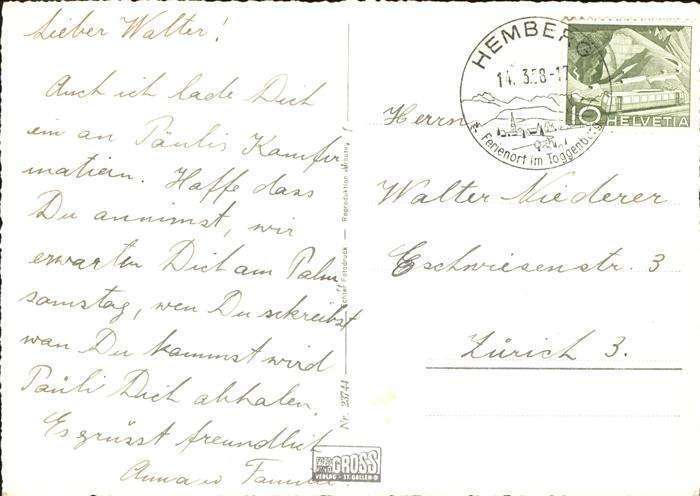 Lieber Walter!
Auch ich lade Dich
ein an Päulis Konfir
mation. Hoffe dass
Du annimst, wir
erwarten Dich am Palm
samstag, wen Du schreibst
wan Du kommst wird
Päuli Dich abholen.
Es grüsst freundlich
Anna u Familie
Echter Fotodruck — Reproduktion
Nr. 23744
FOTO
GROSS
VERLAG · ST. GALLEN
HEMBERG
14.3.58-17
Ferienort im Toggenburg
10 HELVETIA
Herrn
Walter Niederer
Eschwiesenstr. 3
Zürich 3.